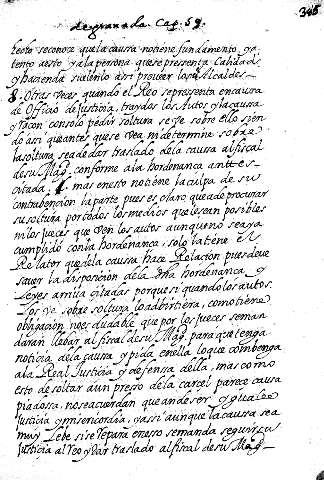 de granada. Cap. 59.
345
se conoze que la causa no tiene fundamento, y a
tento a esto y a la persona que se presenta calidad
y hacienda suelen assi proveer los Alcaldes
8. Otras veces quando el Reo se presenta en causa
de Officio de Justicia, traydos los Autos y la causa
y racon con solo pedir soltura se ve sobre ello sien
do assi que antes que se vea ni determine sobre
la soltura se a de dar traslado de la causa al fiscal
de su Mag. conforme a la hordenanca antte es
citada, mas en esto no tiene la culpa de su
contrabencion la parte pues es claro que a de procurar
su soltura por todos los medios que le sean posibles
ni los jueces que ven los autos aunque no se aya
cumplido con la hordenanca, solo la tiene el
Relator que de la causa hace Relacion pues deve
saver la disposicion de la dha hordenanca y
Leyes arriva citadas porque si quando los autos
los ve sobre soltura lo adbirtiera, como tiene
obligacion no es dudable que por los jueces se man
daran llebar al fiscal de su Mag. para que tenga
noticia de la causa y pida en ella lo que combenga
a la Real Justicia y defensa della, mas como
esto de soltar a un presso de la carcel parece causa
piadossa, no se acuerdan que an de ser yguales
Justicia y misericordia, y assi aunque la causa sea
muy Lebe si se repara en esso se manda seguir su
Justicia al reo y dar traslado al fiscal de su Mag